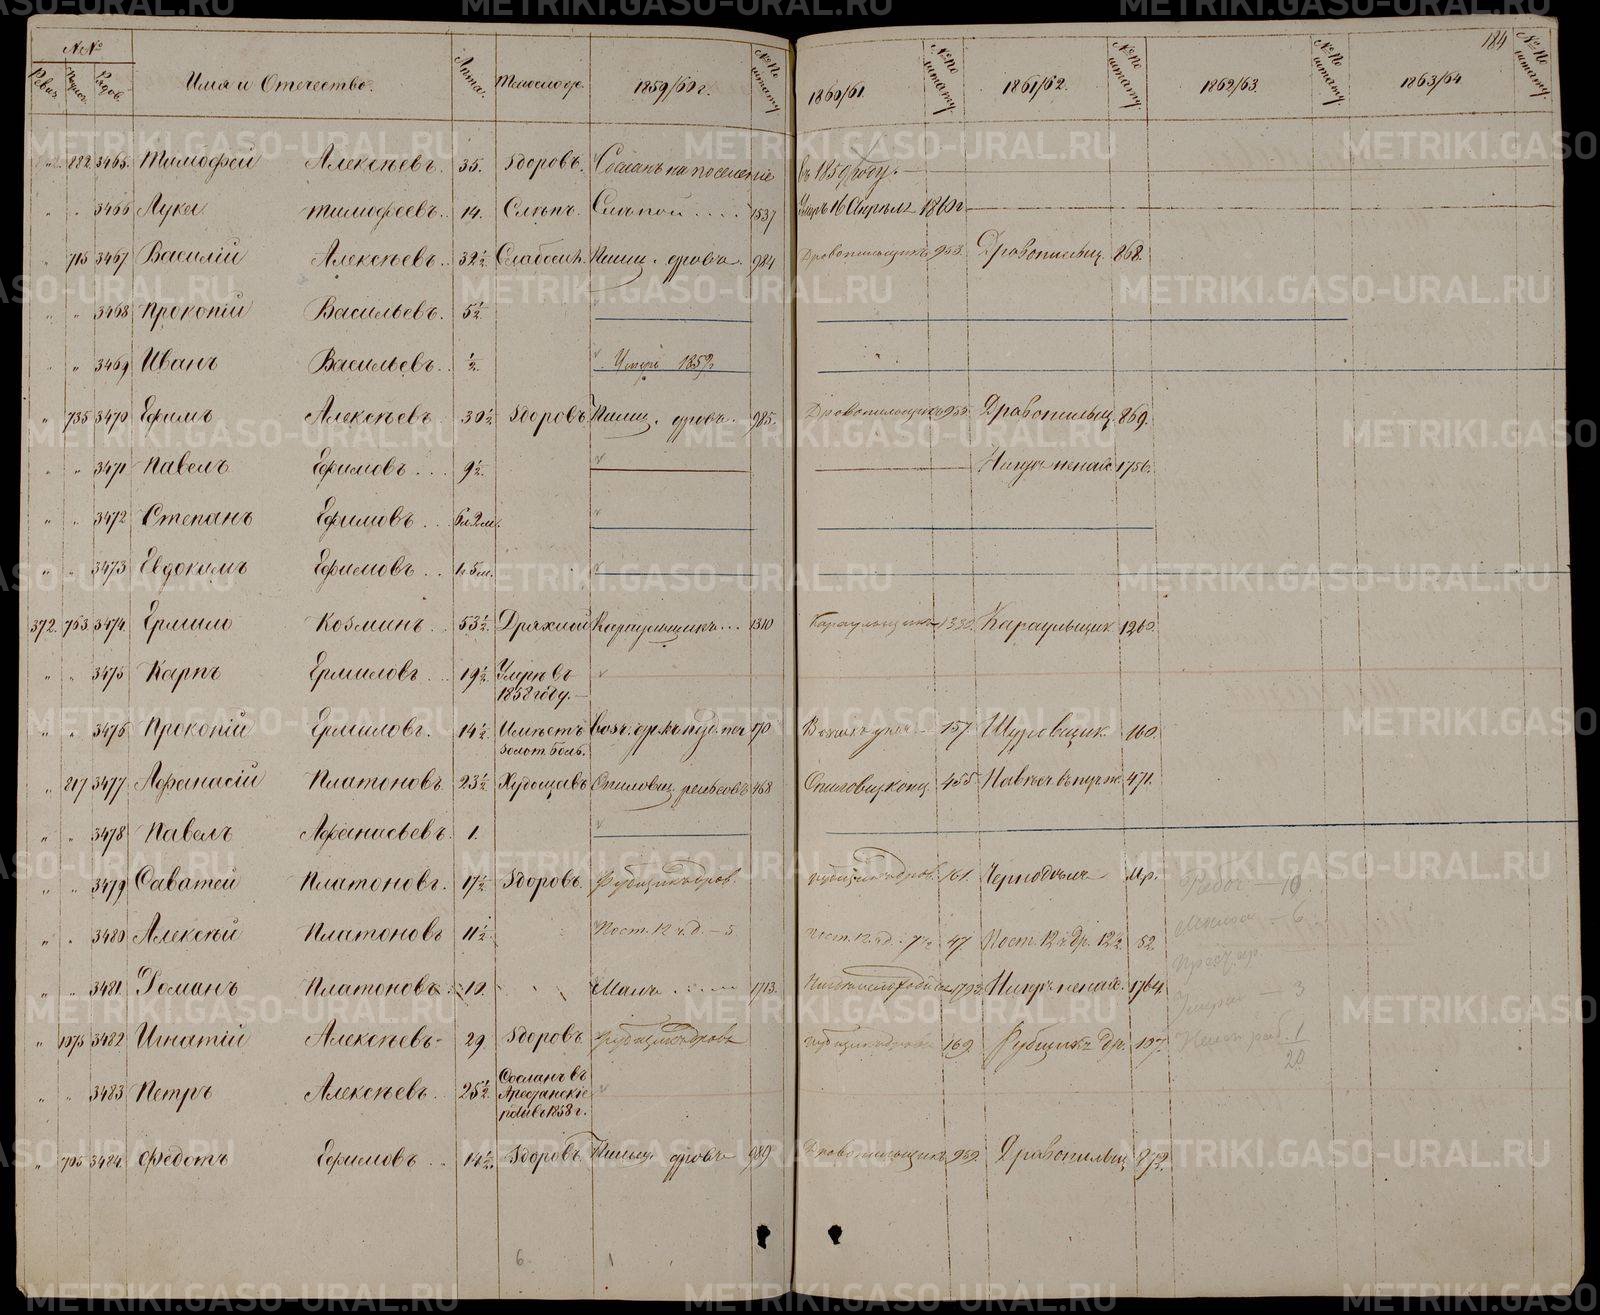 NNº
Ревиз. Рядов. Имя и Отчество. Лѣта. Тѣлослож. 1859/60 г. №№ по штату 1860/61. №№ по штату. 1861/62. №№ по штату. 1862/63. №№ по штату. 1863/64 №№ по штату. 184
" 182 3465 Тимофей Алексѣевъ. 35. Здоровъ. Сосланъ на поселеніе въ 1859 году.
" " 3466 Лука Тимофеевъ. 14. Слѣпъ. Слѣпой 1537 Умеръ 16 Апрѣля 1860 г
" 715 3467 Василій Алексѣевъ. 32½ Слабосил. Пилщ. дровъ. 984 Дровопильщикъ 953. Дровопильщ. 868.
" " 3468 Прокопій Васильевъ. 5½
" " 3469 Иванъ Васильевъ. ½ Умеръ 1859.
" 735 3470 Ефимъ Алексѣевъ. 30½ Здоровъ. Пилщ. дровъ. 985. Дровопильщикъ 955. Дровопильщ. 869.
" " 3471 Павелъ Ефимовъ. 9½ 1756.
" " 3472 Степанъ Ефимовъ. 6л 2м.
" " 3473 Евдокимъ Ефимовъ. 1л 5м.
372. 753 3474 Ермило Козминъ. 53½ Дряхлой Караульщикъ 1310 Караульщикъ 1330. Караульщик 1260.
" " 3475 Карпъ Ермиловъ. 19½ Умеръ въ
1858 году.
" " 3476 Прокопій Ермиловъ. 14½ Имѣетъ 170 157 Шуровщик 160.
золот. боль.
" 217 3477 Афанасій Платоновъ. 23½ Худощавъ Опиловщ. рельсовъ 468 455 471.
" " 3478 Павелъ Афанасьевъ. 1.
" " 3479 Саватей Платоновъ. 17½ Здоровъ. Рубщикъ дров. Рубщикъ дров. 161. Чернодѣлъ Мр. 10
" " 3480 Алексѣй Платоновъ 11½ Пост. 12 ч. д. — 5 Пост. 12 ч д. 7½ 47 Пост. 12 ч др. 12½ 52. 6
" " 3481. Романъ Платоновъ. 10. Малъ 1713. 1793. 1764. 3
" 1075 3482 Игнатій Алексѣевъ 29. Здоровъ. Рубщикъ дровъ Рубщикъ дровъ 169. Рубщикъ др. 197. 1
20
" " 3483 Петръ Алексѣевъ. 25½ Сосланъ въ
Арестанскіе
роты въ 1858 г.
" 795 3484. Федотъ Ефимовъ. 14½ Здоровъ. Пильщ. дровъ 989 Дровопильщикъ 959. Дровопильщ 872.
6 1
METRIKI.GASO-URAL.RU